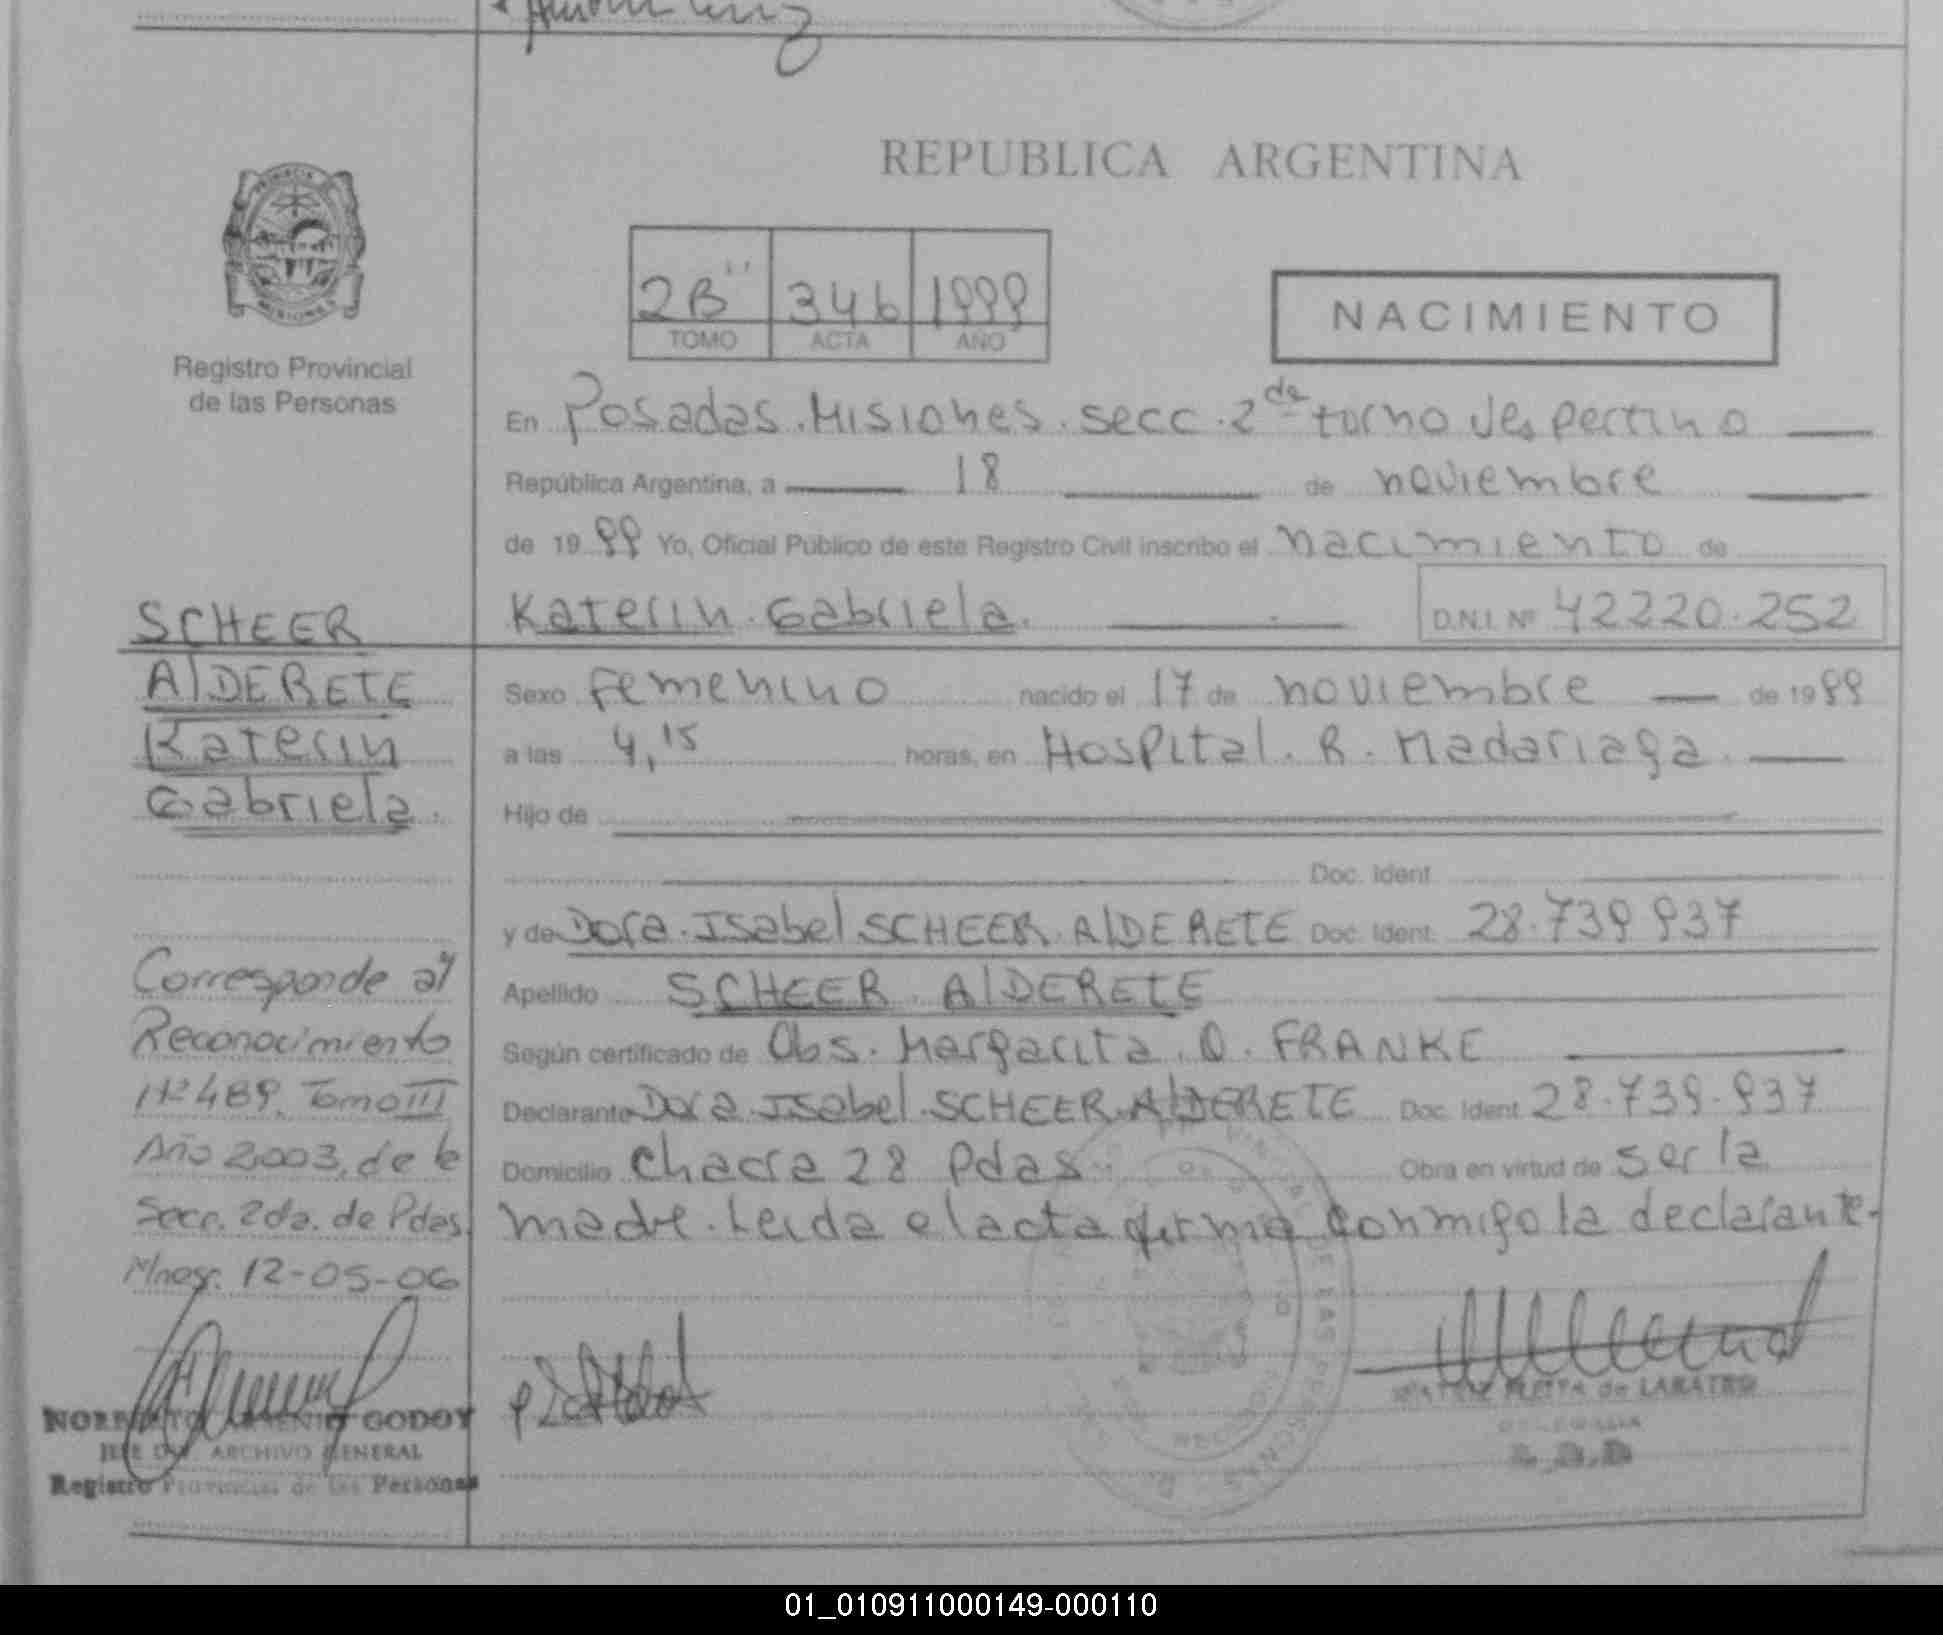 REPUBLICA ARGENTINA
PROVINCIA DE
MISIONES
Registro Provincial
de las Personas
2B" 346 1999
TOMO ACTA AÑO
NACIMIENTO
En Posadas. Misiones. secc. 2da turno vespertino
República Argentina, a 18 de noviembre
de 1999 Yo, Oficial Público de este Registro Civil inscribo el nacimiento de
Katerin. Gabriela. D.N.I. Nº 42220.252
Sexo Femenino nacido el 17 de noviembre de 1999
a las 4,15 horas, en Hospital. R. Madariaga.
Hijo de
Doc. Ident.
y de Dora. Isabel SCHEER. AlDERETE Doc. Ident. 28.739 937
Apellido SCHEER. AlDERETE
Según certificado de Obs. Margarita. O. FRANKE
Declarante Dora. Isabel. SCHEER. AlDERETE Doc. Ident. 28.739.937
Domicilio chacra 28 Pdas. Obra en virtud de ser la
madre. Leida el acta firma conmigo la declarante.
SCHEER
AlDERETE
Katerin
Gabriela.
Corresponde al
Reconocimiento
Nº 489. Tomo III
Año 2003, de la
Secc. 2da. de Pdas.
Mnes. 12-05-06
GODOY
ARCHIVO GENERAL
Registro Provincial de las Personas
de LABATRO
DELEGADA
01_010911000149-000110